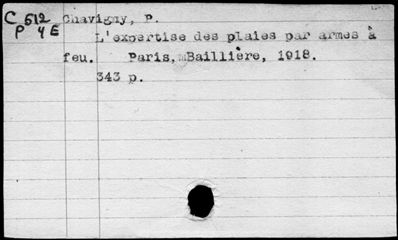 C 512 Chavigny, P.
P 4 E L'expertise des plaies par armes à
feu. Paris, Baillière, 1918.
343 p.